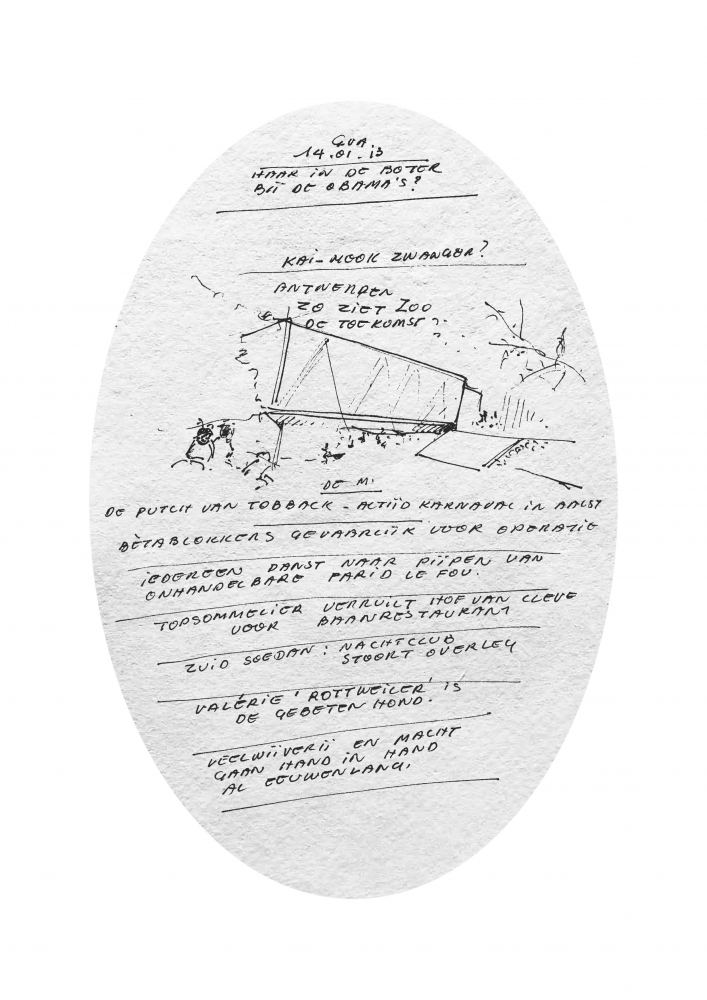 GVA.
14.01.13
HAAR IN DE BOTER
BIJ DE OBAMA'S?
KAI-MOOK ZWANGER?
ANTWERPEN
ZO ZIET ZOO
DE TOEKOMST
DE M.
DE PUTCH VAN TOBBACK - ALTIJD KARNAVAL IN AALST
BÈTABLOKKERS GEVAARLIJK VOOR OPERATIE
IEDEREEN DANST NAAR PIJPEN VAN
ONHANDELBARE FARID LE FOU.
TOPSOMMELIER VERRUILT HOF VAN CLEVE
VOOR BAANRESTAURANT
ZUID SOEDAN: NACHTCLUB
STOORT OVERLEG
VALÉRIE 'ROTTWEILER' IS
DE GEBETEN HOND.
VEELWIJVERIJ EN MACHT
GAAN HAND IN HAND
AL EEUWENLANG.